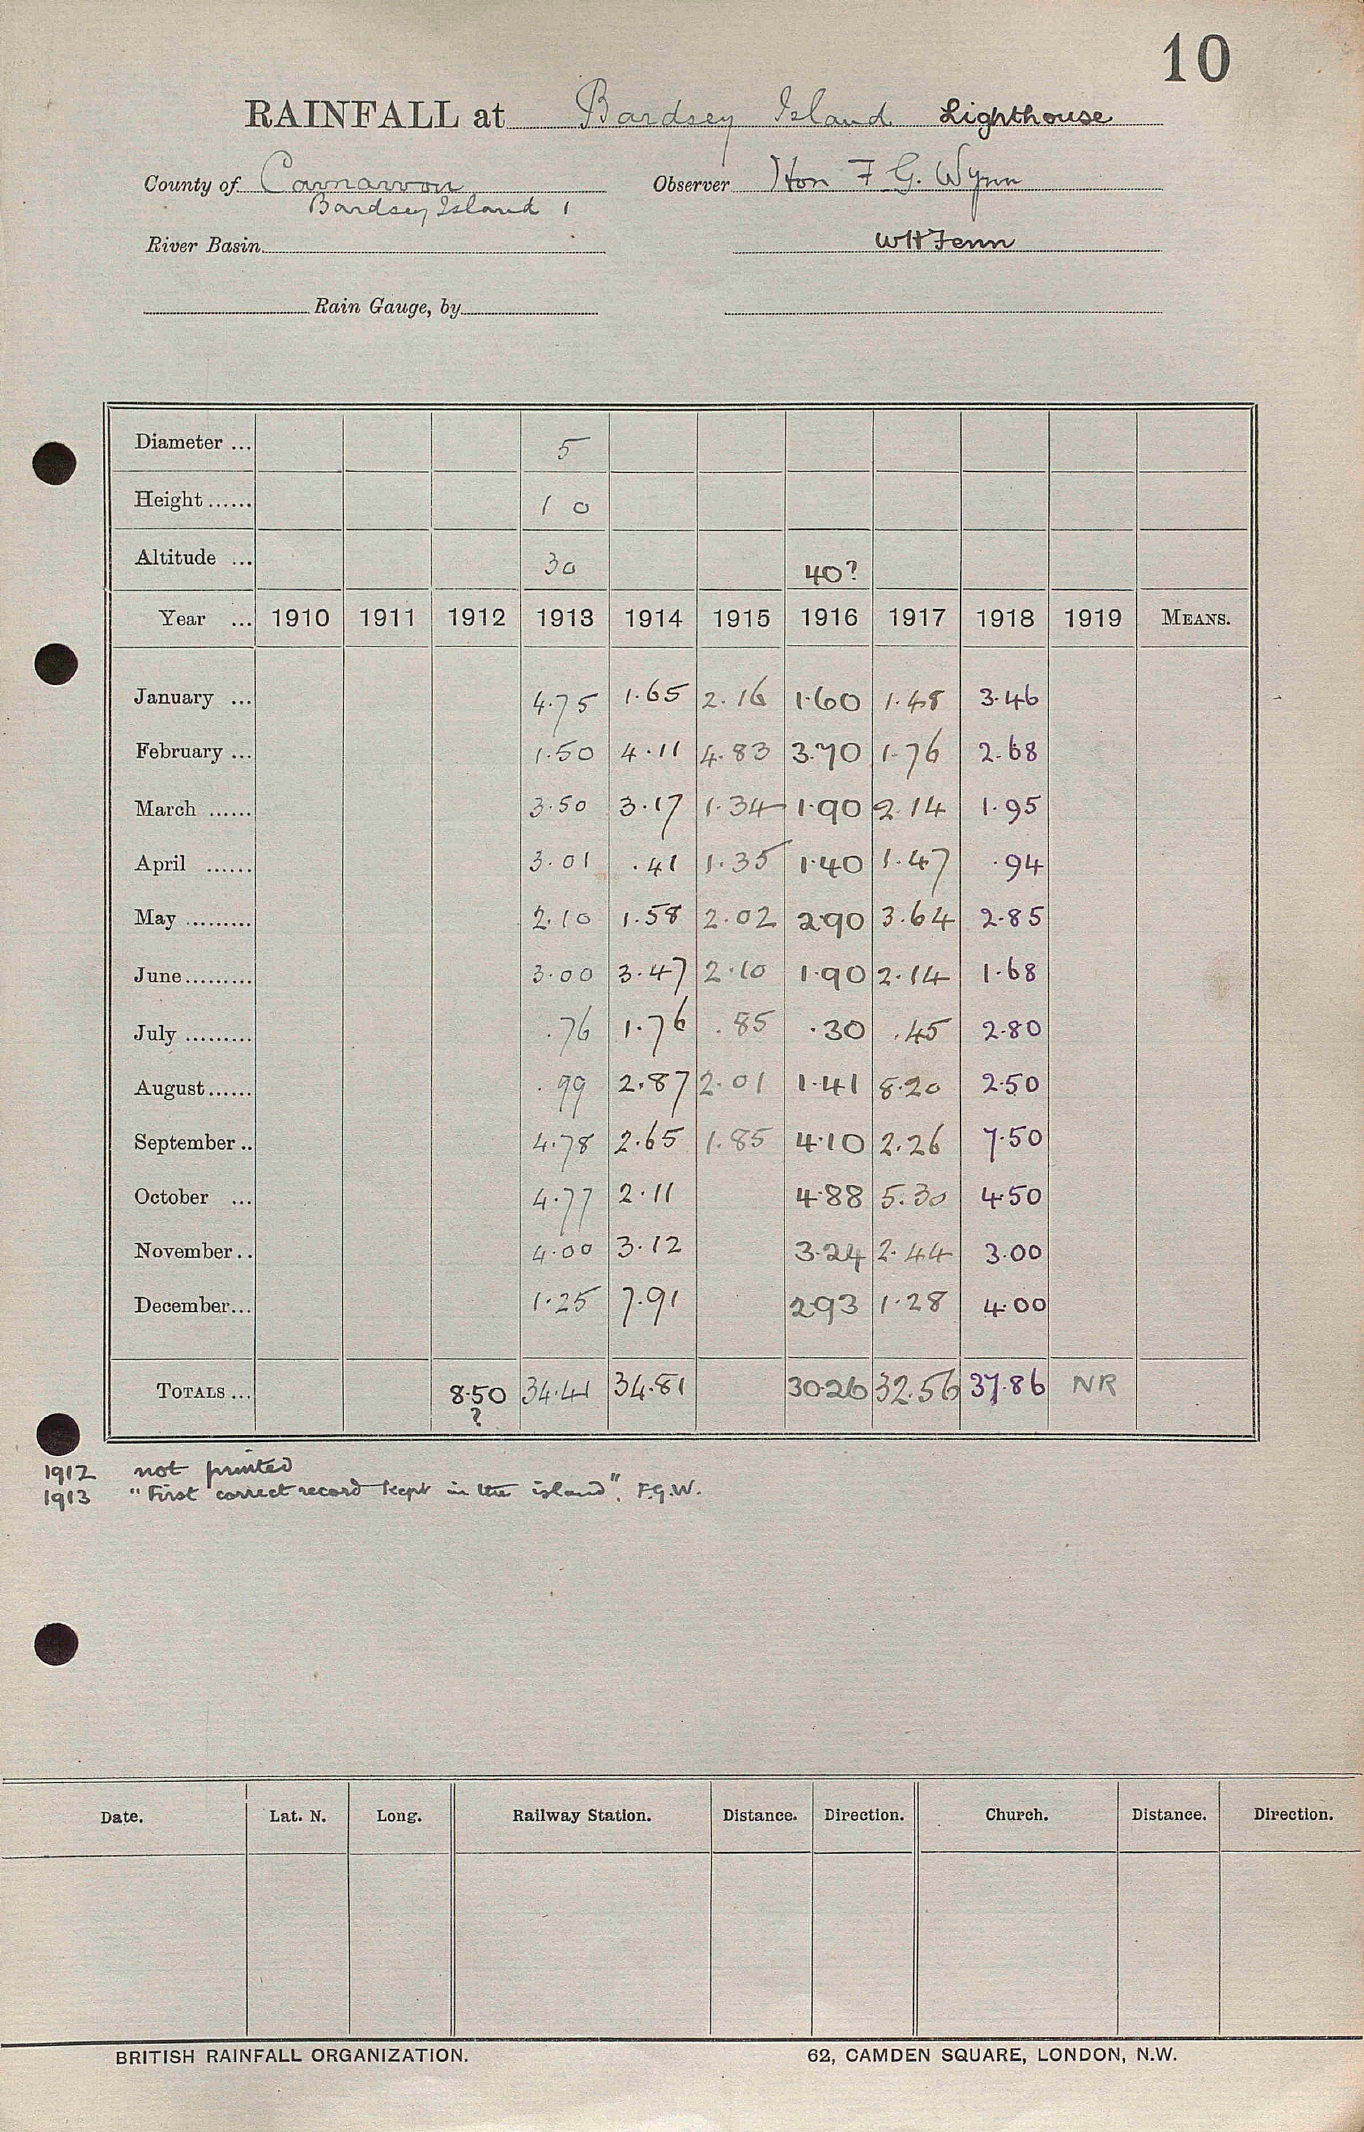 10
RAINFALL at Bardsey Island Lighthouse
County of Carnarvon Observer Hon F. G. Wynn
Bardsey Island 1
River Basin WH Fenn
Rain Gauge, by
Diameter ... 5
Height ...... 10
Altitude ... 30 40?
Year ... 1910 1911 1912 1913 1914 1915 1916 1917 1918 1919 MEANS.
January ... 4.75 1.65 2.16 1.60 1.48 3.46
February ... 1.50 4.11 4.83 3.70 1.76 2.68
March ...... 3.50 3.17 1.34 1.90 2.14 1.95
April ...... 3.01 .41 1.35 1.40 1.47 .94
May ......... 2.10 1.58 2.02 2.90 3.64 2.85
June......... 3.00 3.47 2.10 1.90 2.14 1.68
July ......... .76 1.76 .85 .30 .45 2.80
August...... .99 2.87 2.01 1.41 8.20 2.50
September .. 4.78 2.65 1.85 4.10 2.26 7.50
October ... 4.77 2.11 4.88 5.30 4.50
November .. 4.00 3.12 3.24 2.44 3.00
December... 1.25 7.91 2.93 1.28 4.00
TOTALS ... 8.50 34.41 34.81 30.26 32.56 37.86 NR
?
1912 not printed
1913 "First correct record kept in the island". F.G.W.
Date. Lat. N. Long. Railway Station. Distance. Direction. Church. Distance. Direction.
BRITISH RAINFALL ORGANIZATION. 62, CAMDEN SQUARE, LONDON, N.W.